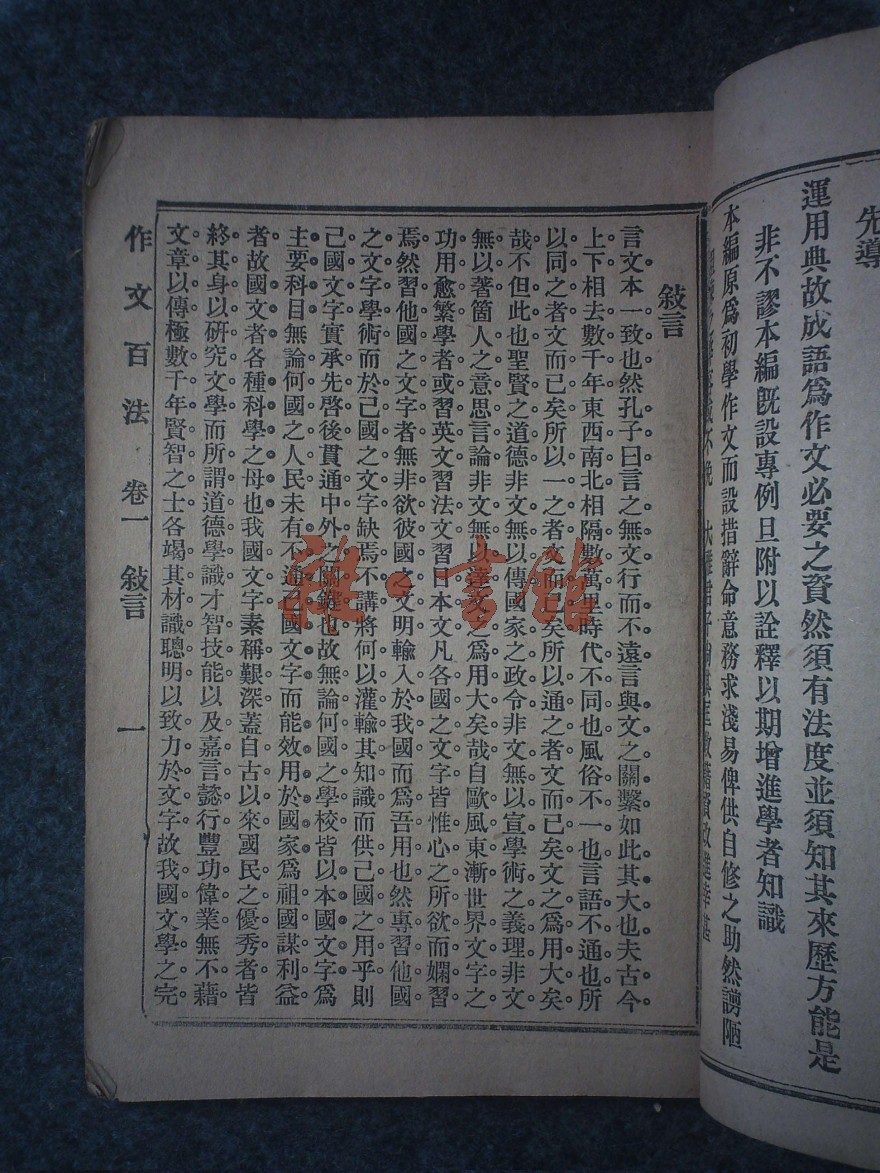 先導
運用典故成語爲作文必要之資然須有法度並須知其來歷方能是
非不謬本編既設專例且附以詮釋以期增進學者知識
本編原爲初學作文而設措辭命意務求淺易俾供自修之助然謭陋
敍言
言文本一致也然孔子曰言之無文行而不遠言與文之關繫如此其大也夫古今
上下相去數千年東西南北相隔數萬里時代不同也風俗不一也言語不通也所
以同之者文而已矣所以一之者文而已矣所以通之者文而已矣文之爲用大矣
哉不但此也聖賢之道德非文無以傳國家之政令非文無以宣學術之義理非文
無以著箇人之意思言論非文無以達文之爲用大矣哉自歐風東漸世界文字之
功用愈繁學者或習英文習法文習日本文凡各國之文字皆惟心之所欲而嫻習
焉然習他國之文字者無非欲彼國之文明輸入於我國而爲吾用也然專習他國
之文字學術而於己國之文字缺焉不講將何以灌輸其知識而供己國之用乎則
己國文字實承先啓後貫通中外之關鍵也故無論何國之學校皆以本國文字爲
主要科目無論何國之人民未有不通己國文字而能效用於國家爲祖國謀利益
者故國文者各種科學之母也我國文字素稱艱深蓋自古以來國民之優秀者皆
終其身以研究文學而所謂道德學識才智技能以及嘉言懿行豐功偉業無不藉
文章以傳極數千年賢智之士各竭其材識聰明以致力於文字故我國文學之完
作文百法 卷一 敍言 一
雜·書館